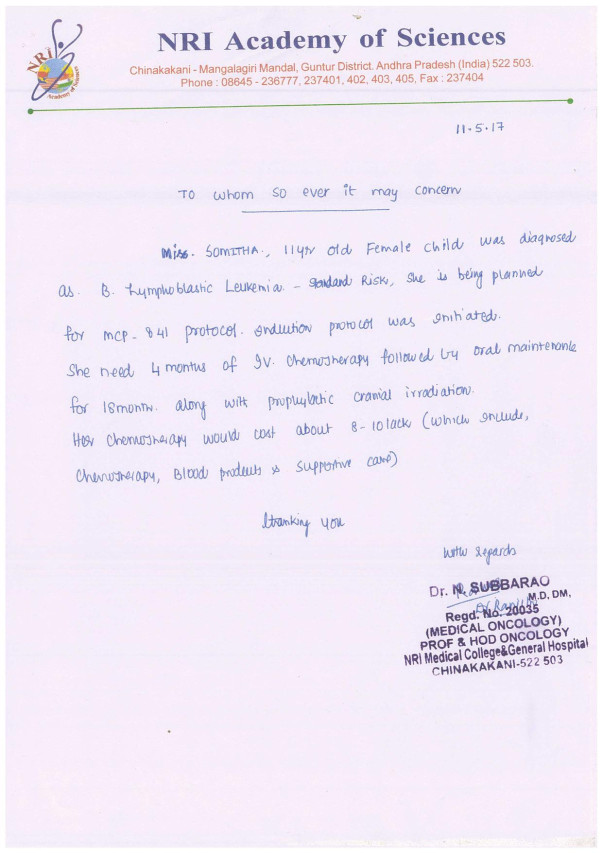 NRI
Academy of Sciences
NRI Academy of Sciences
Chinakakani - Mangalagiri Mandal, Guntur District. Andhra Pradesh (India) 522 503.
Phone : 08645 - 236777, 237401, 402, 403, 405, Fax : 237404
11.5.17
To whom so ever it may concern
Miss. SOMITHA., 11 yr old Female child was diagnosed
as. B. Lymphoblastic Leukemia - Standard Risk, she is being planned
for MCP-841 protocol. Induction protocol was initiated.
She need 4 months of IV. Chemotherapy followed by oral maintenance
for 18 month. along with prophylactic cranial irradiation.
Her chemotherapy would cost about 8-10 lack (which include,
Chemotherapy, Blood products & supportive care)
Thanking you
with regards
Dr. N. SUBBARAO
M.D, DM,
Regd. No. 20035
(MEDICAL ONCOLOGY)
PROF & HOD ONCOLOGY
NRI Medical College&General Hospital
CHINAKAKANI-522 503